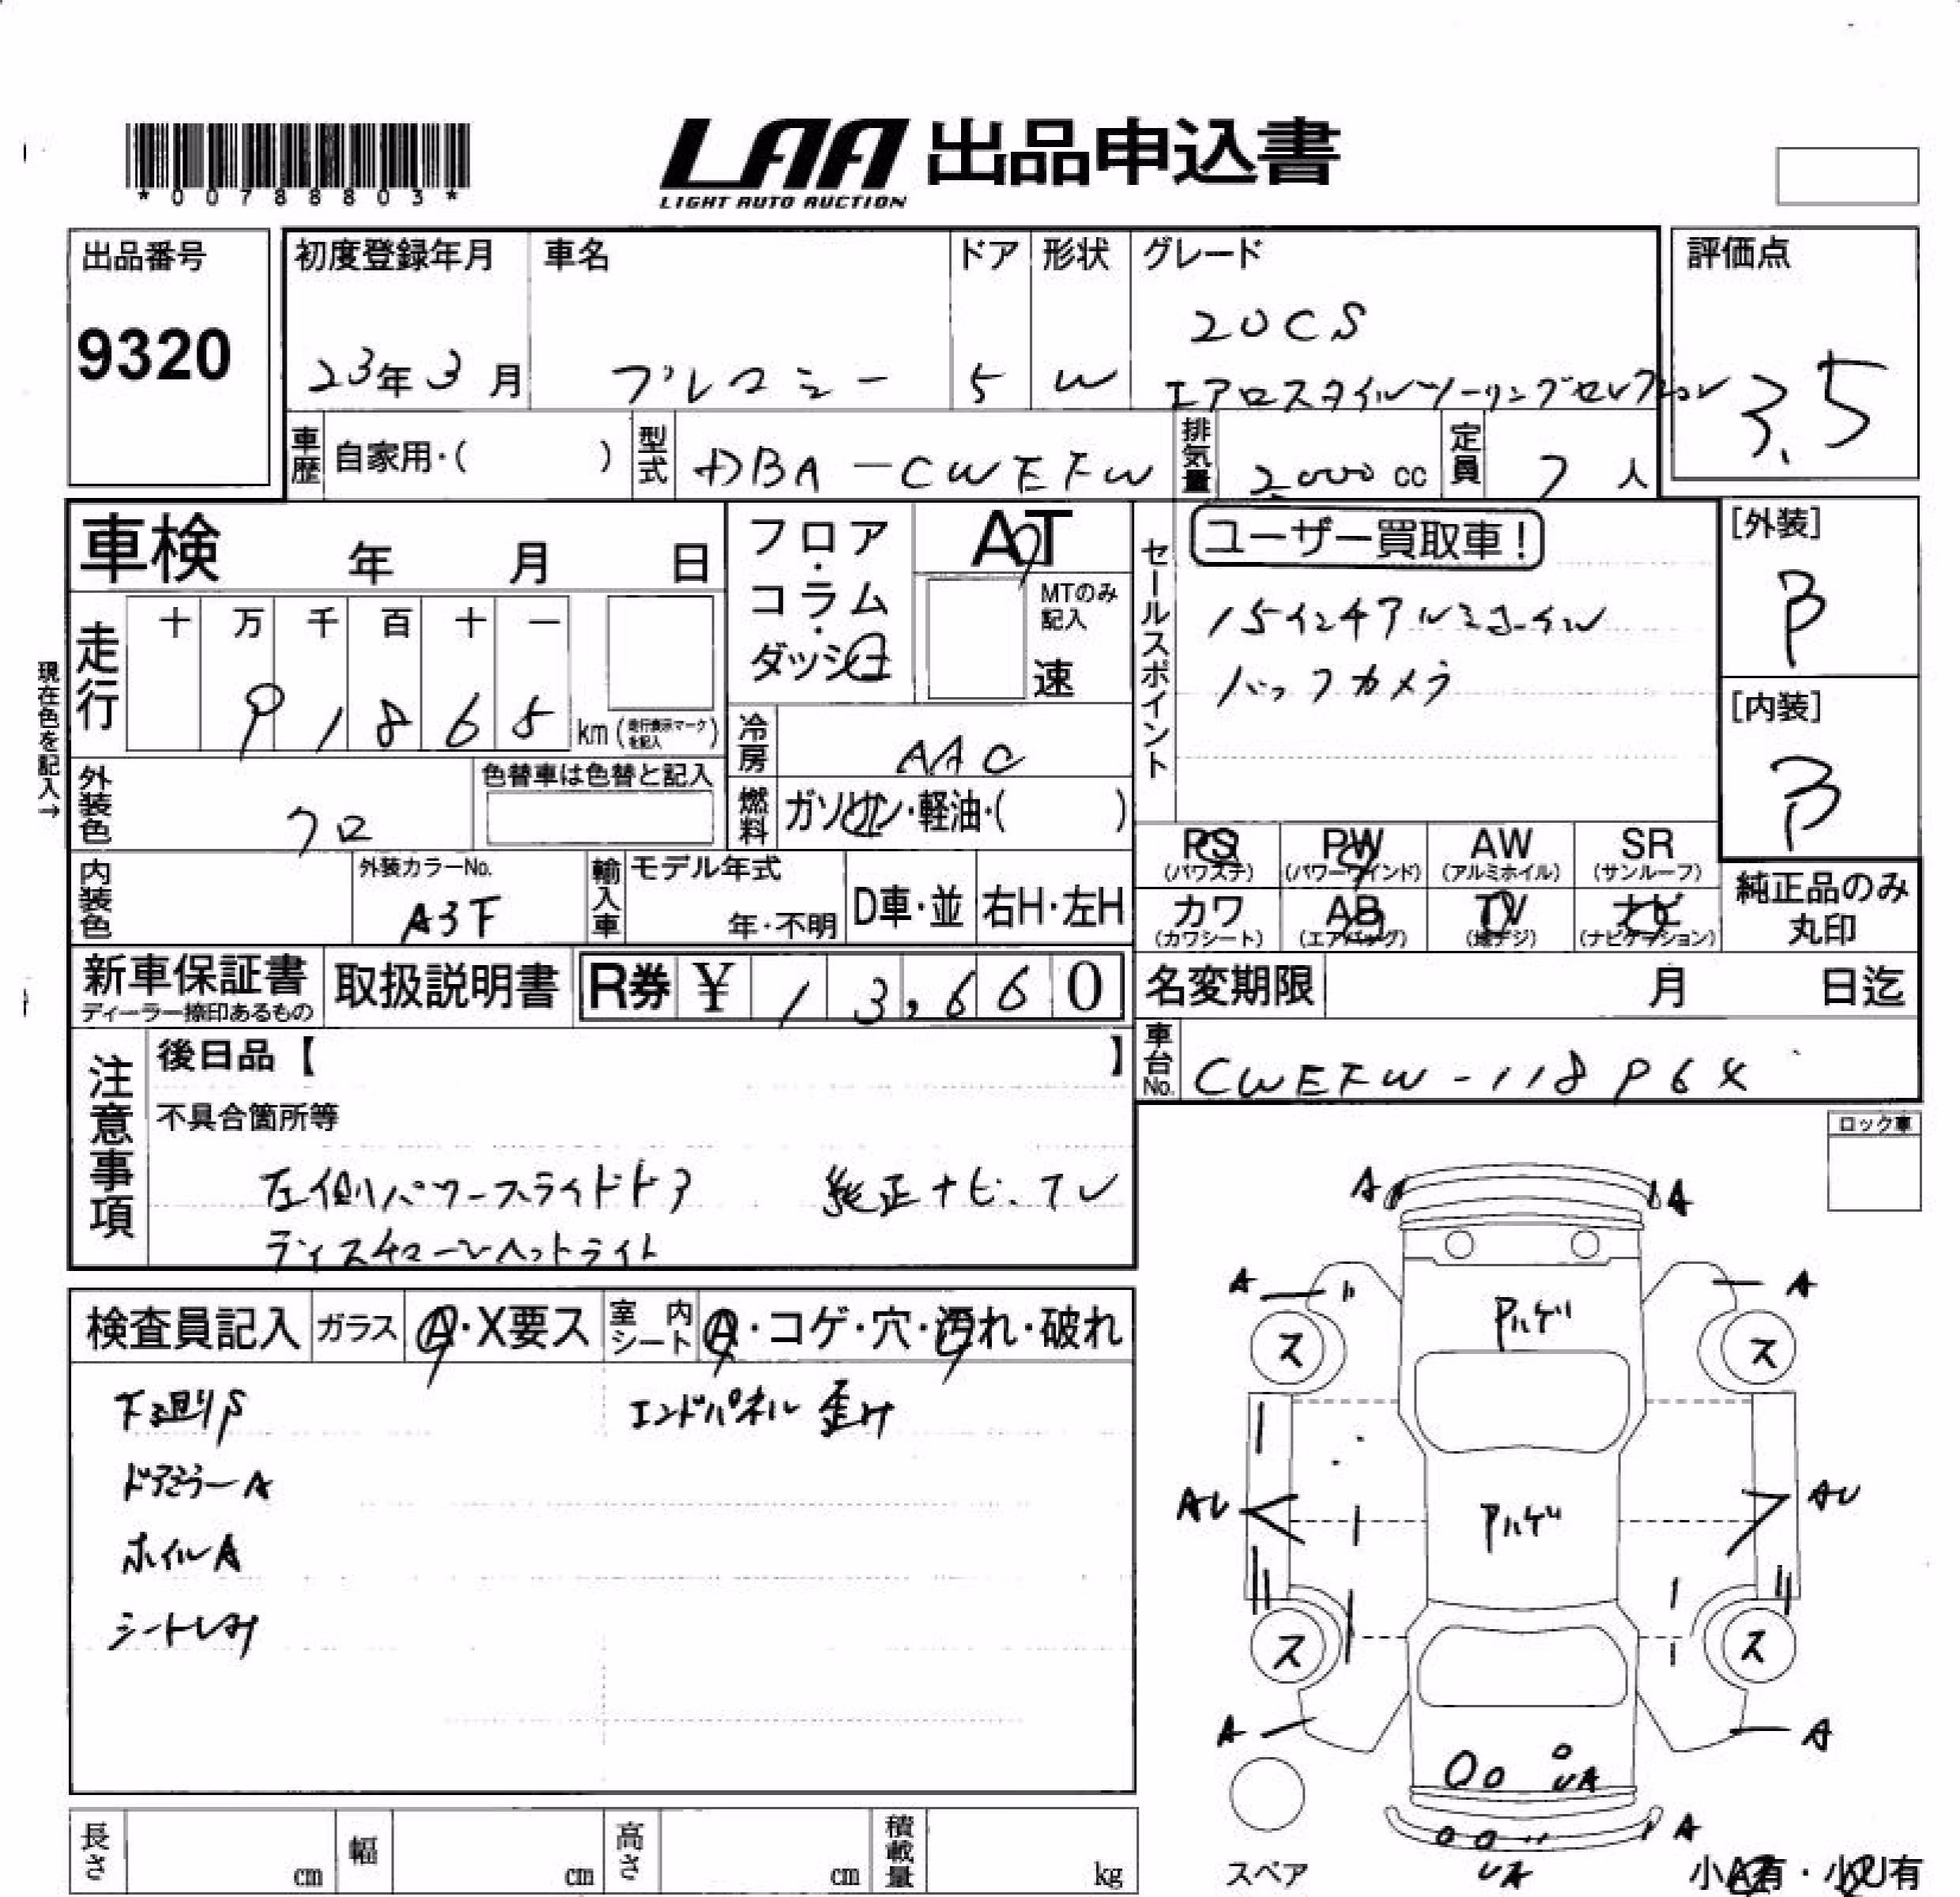 *00788803*
LAA 出品申込書
LIGHT AUTO AUCTION
出品番号
9320
初度登録年月 車名 ドア 形状 グレード
23年3月 プレマシー 5 W 20CS
エアロスタイルツーリングセレクション
評価点
3.5
車歴 自家用・( ) 型式 DBA-CWEFW 排気量 2000cc 定員 7人
車検 年 月 日
フロア・コラム・ダッシュ
AT
MTのみ記入
速
セールスポイント
ユーザー買取車!
15インチアルミホイル
バックカメラ
[外装]
B
[内装]
B
現在色を記入→
走行 十 万 千 百 十 一
91865 km (走行表示マークを記入)
冷房 AAC
燃料 ガソリン・軽油・( )
外装色 クロ
色替車は色替と記入
内装色
外装カラーNo.
A3F
輸入車 モデル年式
年・不明 D車・並 右H・左H
PS (パワステ) PW (パワーウインド) AW (アルミホイル) SR (サンルーフ)
カワ (カワシート) AB (エアバッグ) TV (地デジ) ナビ (ナビゲーション)
純正品のみ丸印
新車保証書
ディーラー捺印あるもの
取扱説明書 R券 ¥ 13,660
名変期限 月 日迄
車台No. CWEFW-118964
注意事項
後日品【 】
不具合箇所等
左側パワースライドドア 純正ナビ.TV
ディスチャージヘットライト
ロック車
検査員記入 ガラス A・X要ス 室内シート A・コゲ・穴・汚れ・破れ
下廻りS エンドパネル歪み
ドアミラーA
ホイルA
シートしみ
A A
A A
ハゲ
ス ス
AU AU
ハゲ
ス ス
A A
UA
A
UA
スペア
小A有・小U有
長さ cm 幅 cm 高さ cm 積載量 kg